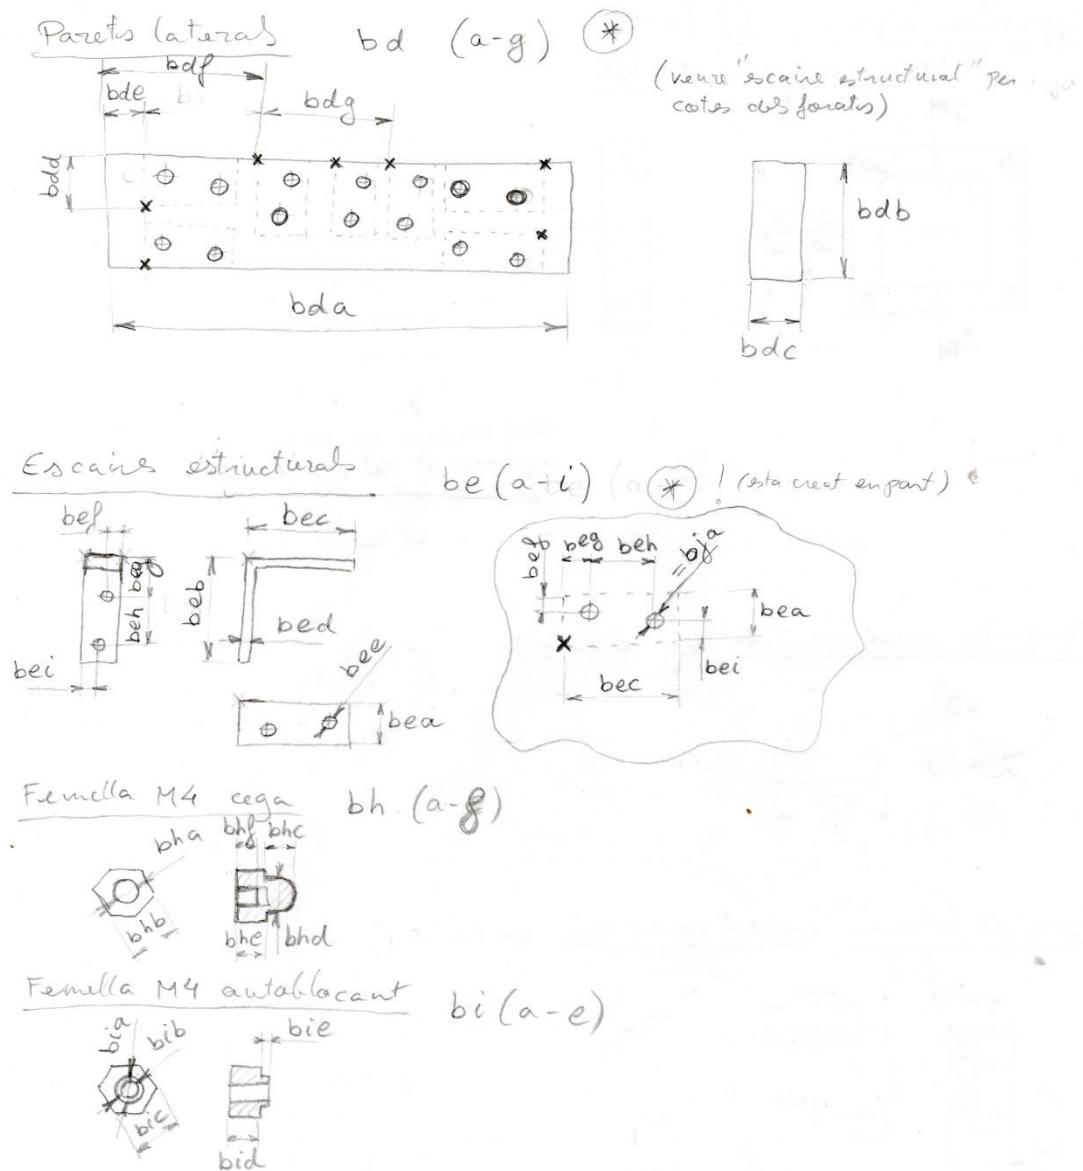 Parets laterals bd (a-g) *
(veure "escaire estructural" per
cotes dels forats)
bdf
bde
bdg
bdd
bdb
bda
bdc
Escaires estructurals be (a-i) * ! (esta creat en part)
bef
beg
beh
bei
bec
beb
bed
bee
bea
bef beg beh = bja
bea
bei
bec
Femella M4 cega bh (a-f)
bha
bhb
bhf bhc
bhe bhd
Femella M4 autoblocant bi (a-e)
bia
bib
bic
bie
bid